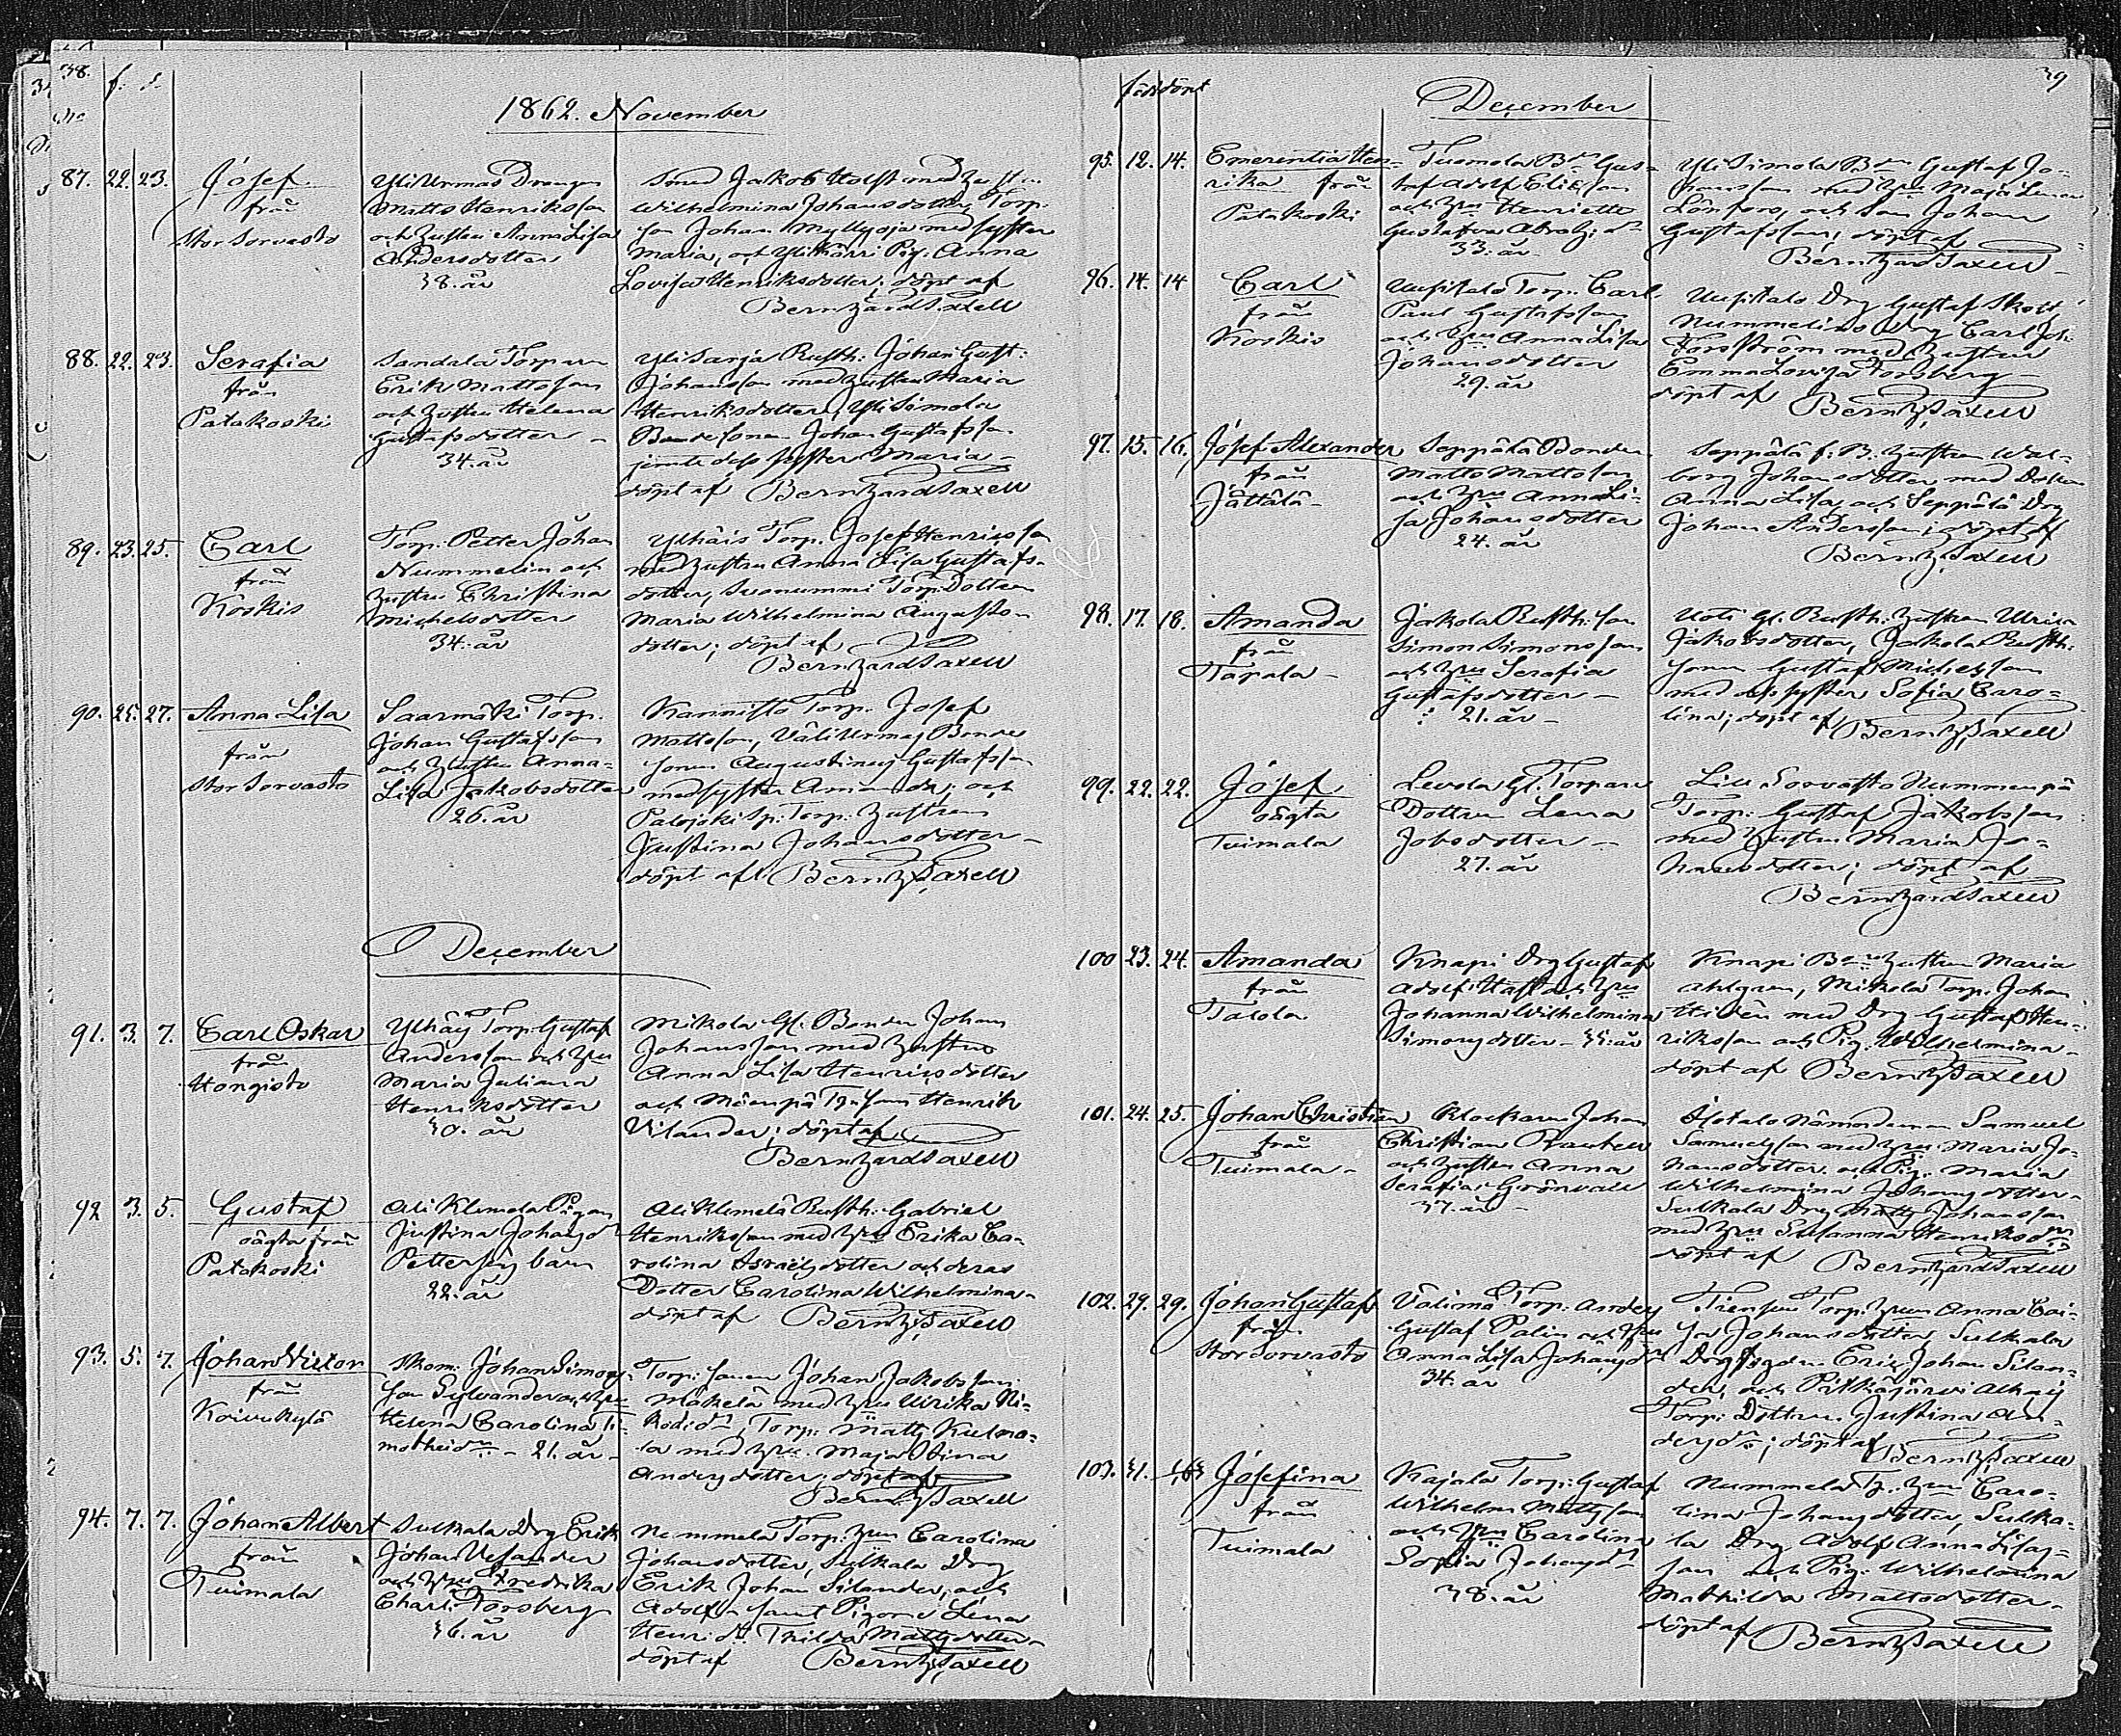 38.
f. d.
1862. November
87. 22. 23. Josef
från
Stor Sorvasto
Yli Urmas Drengen
Matts Henriksson
och hustru Anna Lisa
Andersdotter
38. år
Smed Jakob Holst med hustru
Wilhelmina Johansdotter, Torp.
son Johan Myllyoja med syster
Maria, och Ylikärri Pig. Anna
Lovisa Henriksdotter; döpt af
Bernhard Saxell
88. 22. 23. Serafia
från
Patakoski
Sandala Torparn
Erik Mattsson
och hustru Helena
Gustafsdotter
34. år
Yli Sanja Rusth: Johan Gust:
Johansson med hustru Maria
Henriksdotter, Yli Simola
Bondesonen Johan Gustafsson
jemte dess syster Maria
döpt af Bernhard Saxell
89. 23. 25. Carl
från
Koskis
Torp: Petter Johan
Nummelin och
hustru Christina
Michelsdotter
34. år
Ylhäis Torp. Josef Henricsson
med hustru Anna Lisa Gustafs-
dotter, Suonummi Torp. Dottren
Maria Wilhelmina Augusts-
dotter; döpt af
Bernhard Saxell
90. 25. 27. Anna Lisa
från
Stor Sorvasto
Saarmäki Torp.
Johan Gustafsson
och hustru Anna
Lisa Jakobsdotter
26. år
Kannisto Torp. Josef
Mattsson, Väli Urmas Bonde
sonen Augustinus Gustafsson
med syster Amanda; och
Palojoki Sp: Torp: hustrun
Justina Johansdotter
döpt af Bernh. Saxell
December
91. 3. 7. Carl Oskar
från
Hongisto
Ylhäis Torp: Gustaf
Andersson och hru
Maria Juliana
Henriksdotter
40. år
Mikola Gl. Bonden Johan
Johansson med hustru
Anna Lisa Henricsdotter
och Mäenpä Tp: sonen Henrik
Vilander; döpt af
Bernhard Saxell
92 3. 5. Gustaf
oägta från
Patakoski
Ali Klemola Pigan
Justina Johansdr
Petterss barn
22. år
Ali Klemelä Rusth: Gabriel
Henriksson med hru Erika Ca-
rolina Israelsdotter och deras
Dotter Carolina Wilhelmina
döpt af Bernh. Saxell
93. 5. 7. Johan Victor
från
Koivukylä
Skom: Johan Simons-
son Sylvander och hru
Helena Carolina Ti-
motheidr 21. år
Torp: sonen Johan Jakobsson
Mäkelä med hru Ulrika Ni-
kodidr, Torp: Matts Kulma-
la med hru Maja Stina
Andersdotter; döpt af
Bernh. Saxell
94. 7. 7. Johan Albert
från
Tuimala
Sulkala Drg Erik
Johan Vesander
och hru Fredrika
Charl: Forsberg
46. år
Nummela Torp. hru Carolina
Johansdotter, Sulkala Drg
Erik Johan Silander, och
Adolf samt Pigorne Lena
Henridr. Thilda Mattsdotter
döpt af Bernh. Saxell
39
född döpt
December
95. 12. 14. Emerentia Hen-
rika från
Patakoski
Tuomola Bdn Gus-
taf Adolf Elieson
och hru Henriette
Gustafva Abrah: dr
33. år
Yli Simola Bdn Gustaf Jo-
hansson med hru Maja Lena
Lönfors, och Son Johan
Gustafsson; döpt af
Bernhard Saxell
96. 14. 14 Carl
från
Koskis
Uusitalo Torp. Carl
Paul Gustafsson
och hru Anna Lisa
Johansdotter
29. år
Uusitalo Drg Gustaf Skott,
Nummelins drg Carl Joh:
Forsström med hustru
Emma Lovisa Forsberg
döpt af Bernh. Saxell
97. 15. 16. Josef Alexander
från
Jättälä
Seppälä Bonden
Matts Mattsson
och hru Anna Li-
sa Johansdotter
24. år
Seppälä f. B. hustrun Wal-
borg Johansdotter med Dottern
Anna Lisa, och Seppälä Drg
Johan Andersson; döpt af
Bernh. Saxell
98. 17. 18. Amanda
från
Tapala
Jakola Rusth: son
Simon Simonsson
och hru Serafia
Gustafsdotter
21. år
Uoti gl. Rusth: hustrun Ulrica
Jakobsdotter, Jakola Rusth:
sonen Gustaf Michelsson
med dess syster Sofia Caro-
lina; döpt af Bernh. Saxell
99. 22. 22. Josef
oägta
Tuimala
Levola Gl. Torpare
Dottren Lena
Jobsdotter
27. år
Lill Sorvasto Nummenpä
Torp: Gustaf Jakobsson
med hustru Maria Jo-
hansdotter; döpt af
Bernhard Saxell
100 23. 24. Amanda
från
Talola
Knapi Drg Gustaf
Adolf Hast och hru
Johanna Wilhelmina
Simonsdotter år
Knapi Bde hustrun Maria
Ahlgren, Mikola Torp. Johan
Hidén med Drg Gustaf Hen-
riksson och Pig. Wilhelmina
döpt af Bernh. Saxell
101. 24. 25. Johan Christian
från
Tuimala
Klockaren Johan
Christian Rautell
och hustru Anna
Serafia Grönvall
37. år
Isotalo Nämndeman Samuel
Samuelsson med hru Maria Jo-
hansdotter och Pig. Maria
Wilhelmina Johansdotter
Sulkala Drg Matts Johansson
med hru Susanna Henriksdr
döpt af Bernhard Saxell
102. 29. 29. Johan Gustaf
från
Stor Sorvasto
Välimä Torp. Anders
Gustaf Palin och hru
Anna Lisa Johansdr
34. år
Tienpuo Torp. hru Anna Cai-
sa Johansdotter, Sulkala
Drg Erik Johan Silan-
der, och Pitkäjärvi Alhais
Torp: Dottren Justina An-
dersdr; döpt af Bernh. Saxell
103. 31. Josefina
från
Tuimala
Kajala Torp: Gustaf
Wilhelm Mattsson
och hru Carolina
Sophia Johansdr
38. år
Nummela Tp. hru Caro-
lina Johansdotter, Sulka-
la Drg Adolf Anna Lisas-
son och Pig: Wilhelmina
Mathilda Mattsdotter
döpt af Bernh. Saxell